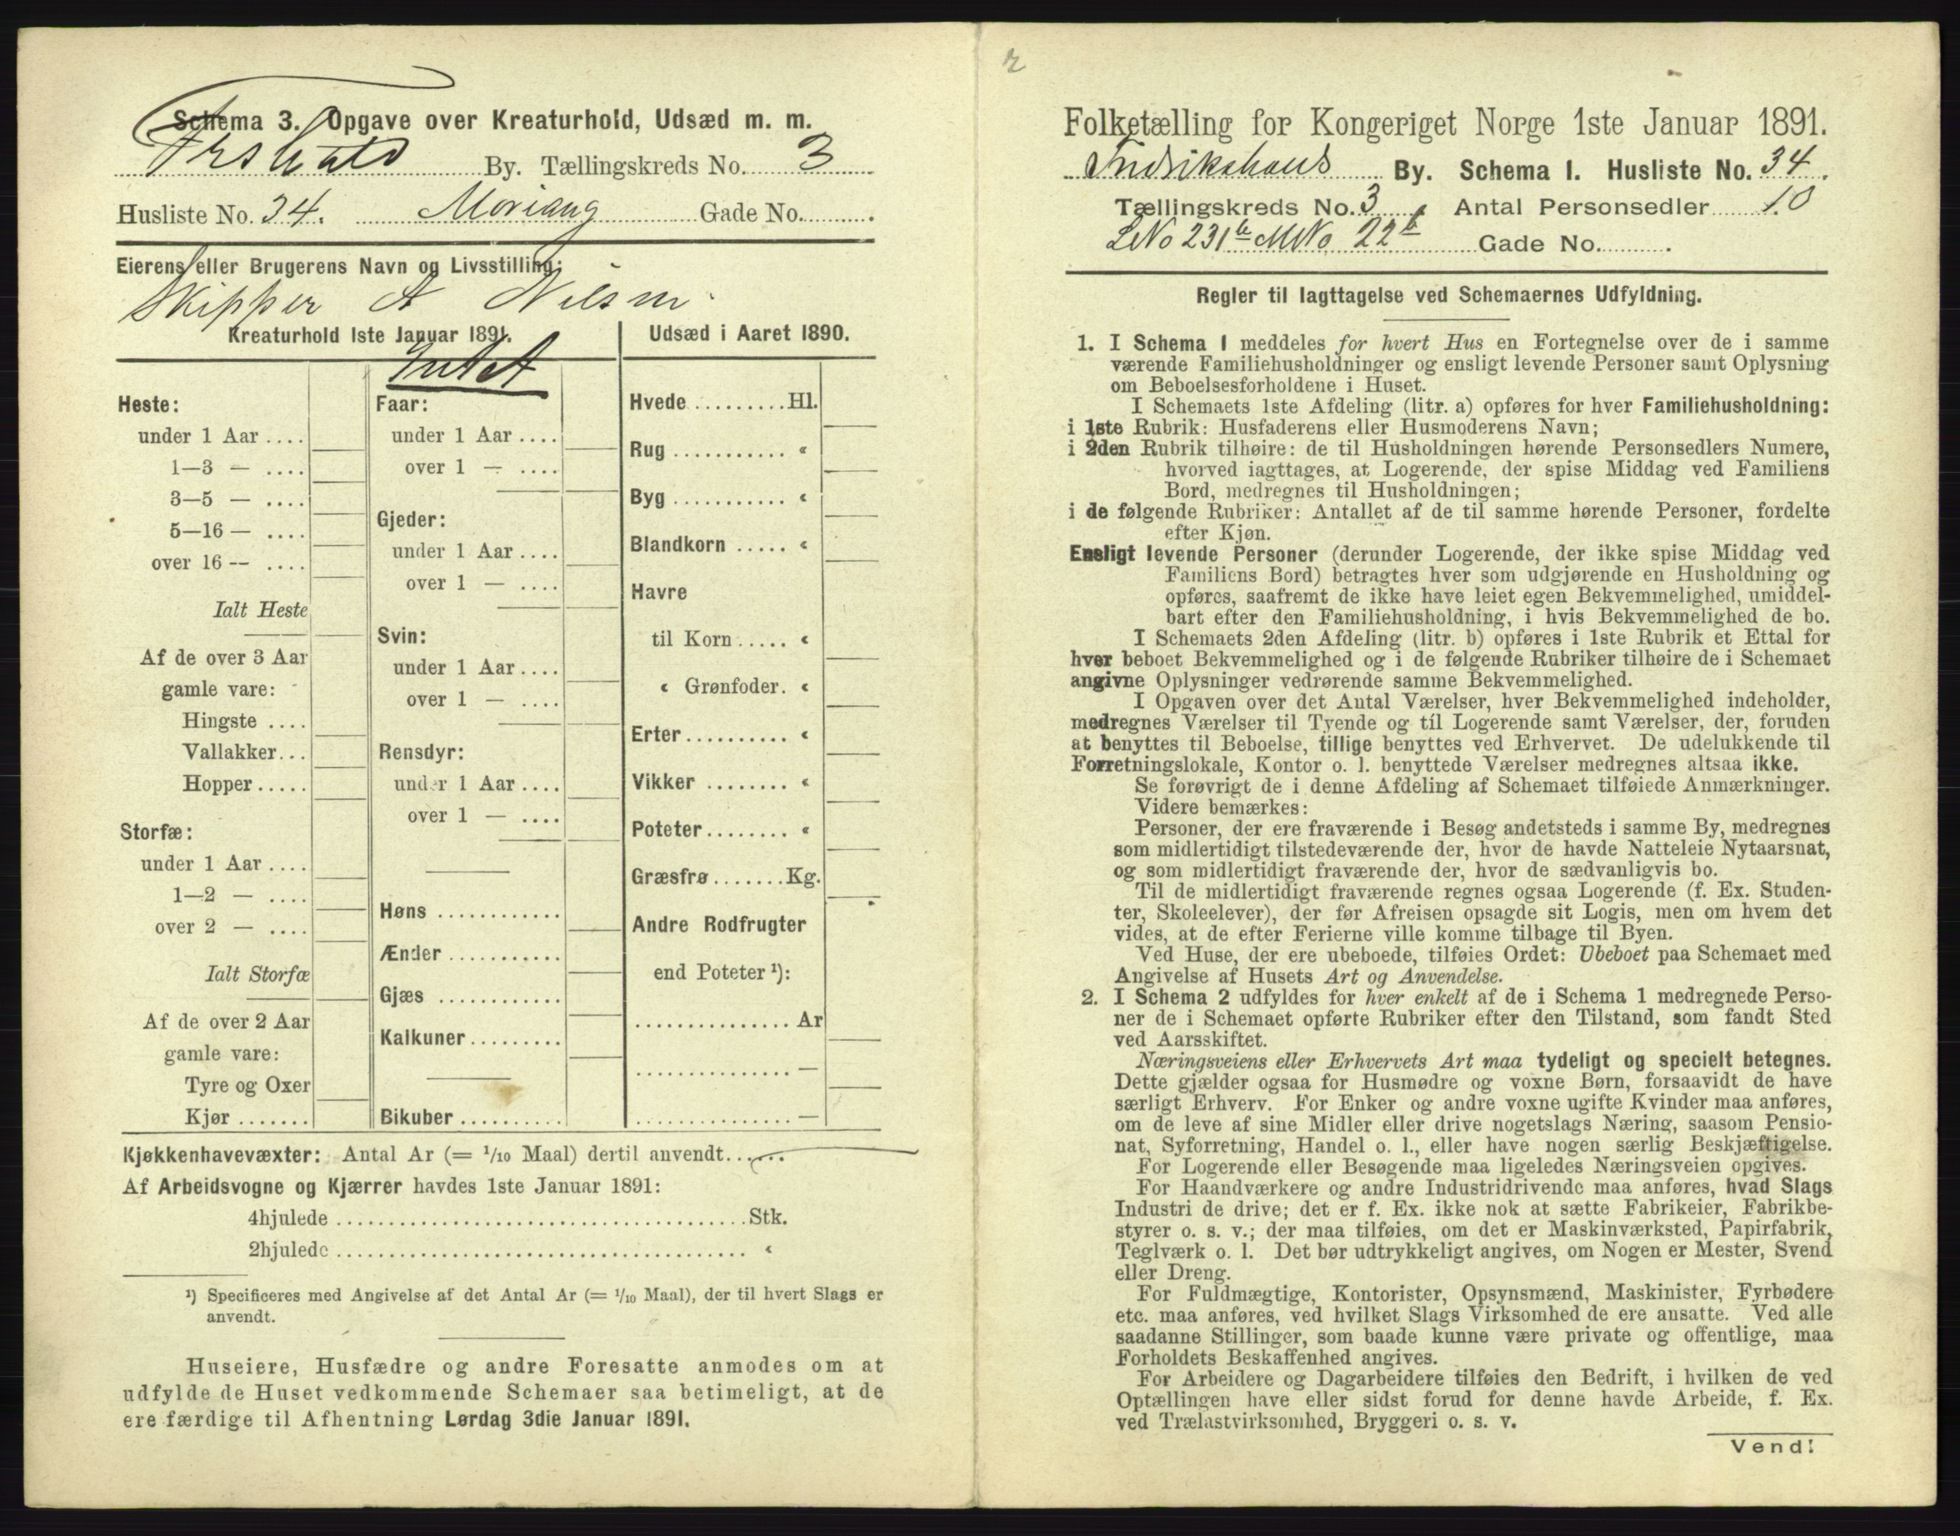 Schema 3. Opgave over Kreaturhold, Udsæd m. m.
Frshald By. Tællingskreds No. 3
Husliste No. 34. Moriang Gade No. .
Eierens eller Brugerens Navn og Livsstilling:
Skipper A Nilsen
Kreaturhold 1ste Januar 1891.
Intet
Heste:
under 1 Aar ....
1—3 — ....
3—5 — ....
5—16 — ....
over 16 — ....
Ialt Heste
Af de over 3 Aar
gamle vare:
Hingste ....
Vallakker...
Hopper.....
Storfæ:
under 1 Aar ....
1—2 — ....
over 2 — ....
Ialt Storfæ
Af de over 2 Aar
gamle vare:
Tyre og Oxer
Kjør .......
Faar:
under 1 Aar ....
over 1 — ....
Gjeder:
under 1 Aar ....
over 1 — ....
Svin:
under 1 Aar ....
over 1 — ....
Rensdyr:
under 1 Aar ....
over 1 — ....
Høns ............
Ænder ...........
Gjæs ............
Kalkuner.........
Bikuber ..........
Udsæd i Aaret 1890.
Hvede .........Hl.
Rug ........... «
Byg ........... «
Blandkorn ..... «
Havre
til Korn ..... «
« Grønfoder. «
Erter.......... «
Vikker ........ «
Poteter........ «
Græsfrø .......Kg.
Andre Rodfrugter
end Poteter ¹):
............... Ar
............... —
............... —
Kjøkkenhavevæxter: Antal Ar (= 1/10 Maal) dertil anvendt......
Af Arbeidsvogne og Kjærrer havdes 1ste Januar 1891:
4hjulede ........................................Stk.
2hjulede ........................................ «
¹) Specificeres med Angivelse af det Antal Ar (= 1/10 Maal), der til hvert Slags er
anvendt.
Huseiere, Husfædre og andre Foresatte anmodes om at
udfylde de Huset vedkommende Schemaer saa betimeligt, at de
ere færdige til Afhentning Lørdag 3die Januar 1891.
2
Folketælling for Kongeriget Norge 1ste Januar 1891.
Fredrikshald By. Schema I. Husliste No. 34.
Tællingskreds No. 3, Antal Personsedler 10
LNo 231b MNo 22b Gade No. .
Regler til Iagttagelse ved Schemaernes Udfyldning.
1. I Schema 1 meddeles for hvert Hus en Fortegnelse over de i samme
værende Familiehusholdninger og ensligt levende Personer samt Oplysning
om Beboelsesforholdene i Huset.
I Schemaets 1ste Afdeling (litr. a) opføres for hver Familiehusholdning:
i 1ste Rubrik: Husfaderens eller Husmoderens Navn;
i 2den Rubrik tilhøire: de til Husholdningen hørende Personsedlers Numere,
hvorved iagttages, at Logerende, der spise Middag ved Familiens
Bord, medregnes til Husholdningen;
i de følgende Rubriker: Antallet af de til samme hørende Personer, fordelte
efter Kjøn.
Ensligt levende Personer (derunder Logerende, der ikke spise Middag ved
Familiens Bord) betragtes hver som udgjørende en Husholdning og
opføres, saafremt de ikke have leiet egen Bekvemmelighed, umiddel-
bart efter den Familiehusholdning, i hvis Bekvemmelighed de bo.
I Schemaets 2den Afdeling (litr. b) opføres i 1ste Rubrik et Ettal for
hver beboet Bekvemmelighed og i de følgende Rubriker tilhøire de i Schemaet
angivne Oplysninger vedrørende samme Bekvemmelighed.
I Opgaven over det Antal Værelser, hver Bekvemmelighed indeholder,
medregnes Værelser til Tyende og til Logerende samt Værelser, der, foruden
at benyttes til Beboelse, tillige benyttes ved Erhvervet. De udelukkende til
Forretningslokale, Kontor o. l. benyttede Værelser medregnes altsaa ikke.
Se forøvrigt de i denne Afdeling af Schemaet tilføiede Anmærkninger.
Videre bemærkes:
Personer, der ere fraværende i Besøg andetsteds i samme By, medregnes
som midlertidigt tilstedeværende der, hvor de havde Natteleie Nytaarsnat,
og som midlertidigt fraværende der, hvor de sædvanligvis bo.
Til de midlertidigt fraværende regnes ogsaa Logerende (f. Ex. Studen-
ter, Skoleelever), der før Afreisen opsagde sit Logis, men om hvem det
vides, at de efter Ferierne ville komme tilbage til Byen.
Ved Huse, der ere ubeboede, tilføies Ordet: Ubeboet paa Schemaet med
Angivelse af Husets Art og Anvendelse.
2. I Schema 2 udfyldes for hver enkelt af de i Schema 1 medregnede Perso-
ner de i Schemaet opførte Rubriker efter den Tilstand, som fandt Sted
ved Aarsskiftet.
Næringsveiens eller Erhvervets Art maa tydeligt og specielt betegnes.
Dette gjælder ogsaa for Husmødre og voxne Børn, forsaavidt de have
særligt Erhverv. For Enker og andre voxne ugifte Kvinder maa anføres,
om de leve af sine Midler eller drive nogetslags Næring, saasom Pensio-
nat, Syforretning, Handel o. l., eller have nogen særlig Beskjæftigelse.
For Logerende eller Besøgende maa ligeledes Næringsveien opgives.
For Haandværkere og andre Industridrivende maa anføres, hvad Slags
Industri de drive; det er f. Ex. ikke nok at sætte Fabrikeier, Fabrikbe-
styrer o. s. v.; der maa tilføies, om det er Maskinværksted, Papirfabrik,
Teglværk o. l. Det bør udtrykkeligt angives, om Nogen er Mester, Svend
eller Dreng.
For Fuldmægtige, Kontorister, Opsynsmænd, Maskinister, Fyrbødere
etc. maa anføres, ved hvilket Slags Virksomhed de ere ansatte. Ved alle
saadanne Stillinger, som baade kunne være private og offentlige, maa
Forholdets Beskaffenhed angives.
For Arbeidere og Dagarbeidere tilføies den Bedrift, i hvilken de ved
Optællingen have eller sidst forud for denne havde Arbeide, f. Ex.
ved Trælastvirksomhed, Bryggeri o. s. v.
Vend!